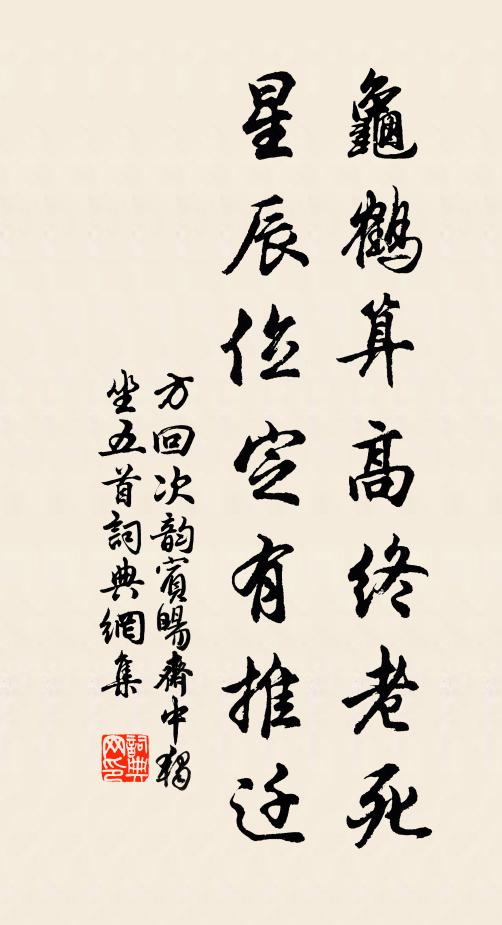 龜鶴算高終老死
星辰位定有推迁
方回次韵賓暘齋中獨
坐五首詞典網集
詞典
网印